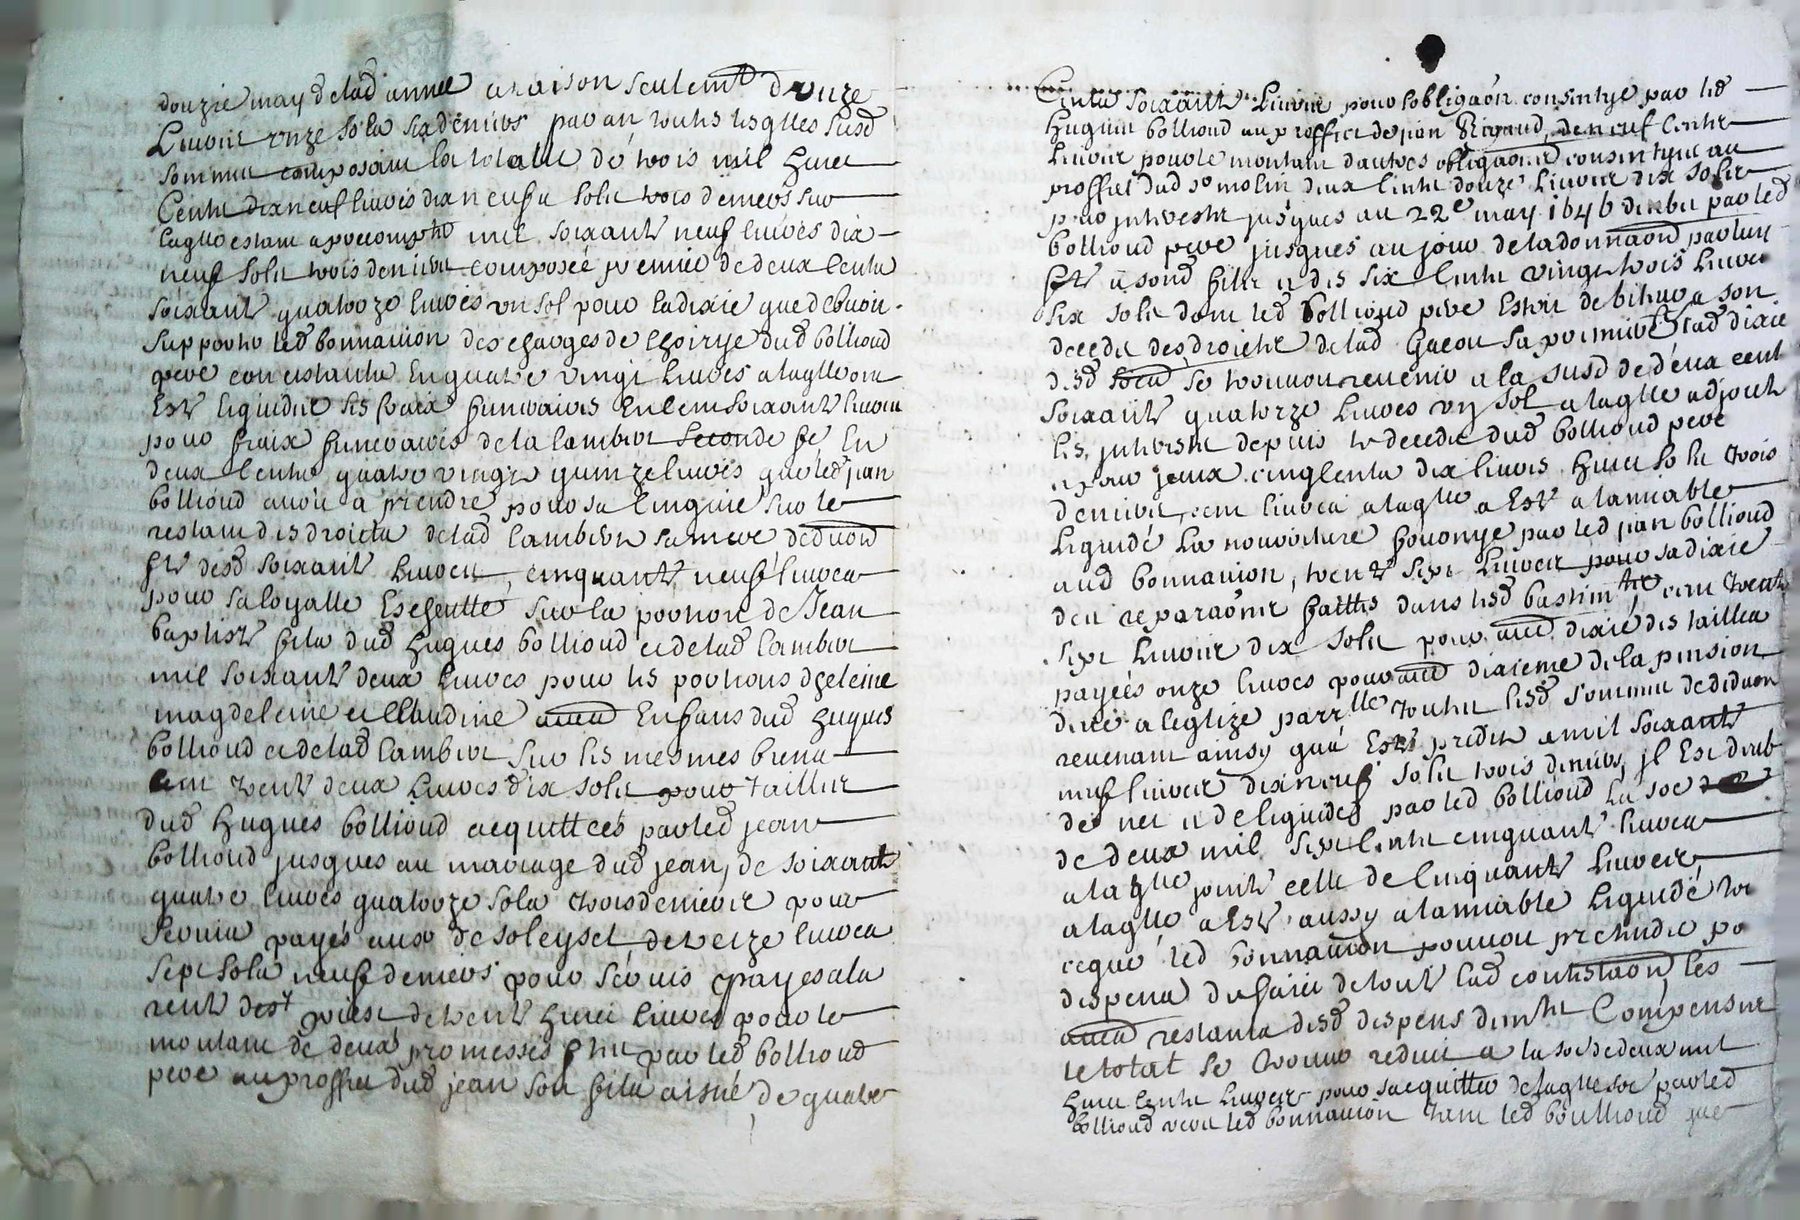 douzie may de lad année a raison seulemt d'unze
Livres unze sols six deniers par an toutes lesqlles susd
sommes composam la totalle de trois mil huict
Cents dix neuf livres dix neuf sols trois deniers sur
laqlle estam mil soixante neuf livres dix
neuf sols trois deniers composée premier de deux cents
soixante quatorze livres un sol pour ladixie que debvoir
supporter led bonnavion des charges de lhoirye dud bollioud
pere consistante En quatre vingt livres a laqlle ont
Esté liquidée les fraix funeraires En cent soixante livres
pour fraix funeraires de la lambert seconde fe En
deux cents quatre vingts quinze livres que led jean
bollioud avoit a prendre pour sa sur le
restam des droicts de lad lambert sa mere deduon
fte desd soixante livres, cinquante neuf livres
pour sa loyalle sur la portion de Jean
baptiste fils dud hugues bollioud et de lad lambert
mil soixante deux livres pour les portions dheleine
magdeleine et Claudine aussi Enfans dud hugues
bollioud et de lad lambert sur les mesmes biens
cent trente deux livres dix sols pour tailles
dud hugues bollioud acquittees par led jean
bollioud jusques au mariage dud jean, de soixante
quatre livres quatorze sols trois deniers pour
servis payés au sr de soleysel de treize livres
sept sols neuf deniers pour servis payes a la
rente dest priest de trente huict livres pour le
montant de deux promesses fte par led bollioud
pere au proffict dud jean son fils aisné de quatre
Cents soixante livres pour lobligaon consentye par led
hugues bollioud au proffict de jean Rigaud, de neuf cents
livres pour le montam dautres obligaons consentyes au
proffict dud sr molin deux cents douze livres dix sols
pour jnterests jusques au 22e may 1646 par led
bollioud pere jusques au jour de la donnaon par luy
fte a sond fils et des six cents vingt trois livres
six sols dont led bollioud pere Estoit debiteur a son
decedz des droicts de lad sa premiere lad dixie
desd se trouvoit revenir a la susd de deux cent
soixante quatorze livres un sol a laqlle adjouté
les jnterests depuis le decedz dud bollioud pere
cinq cents dix livres huict sols trois
deniers, cent livres a laqlle a Esté a lamiable
liquidé La nourriture fournye par led jean bollioud
aud bonnavion, trente sept livres pour sa dixie
des reparaons faittes dans lesd bastimts, cent trente
sept livres dix sols pour aussi dixie des tailles
payées onze livres pour aussi dixieme de la pension
deue a leglize parrlle toutes lesd sommes de deduon
revenant ainsy que Est predit a mil soixante
neuf livres dix neuf sols trois deniers, il Est deub
de net et de liquidez par led bollioud la soe
de deux mil sept cents cinquante livres
a laqlle jointe celle de cinquante livres
a laqlle a Esté aussy a lamiable liquidé
ce que led bonnavion pouvoit pretendre po
despens du faict de toute lad contestaon les
aussi restants desd despens dentre Compensés
le total se trouve reduit a la soe de deux mil
huict cents livres pour sacquitter de laqlle soe par led
bollioud vers led bonnavion tant led boullioud que